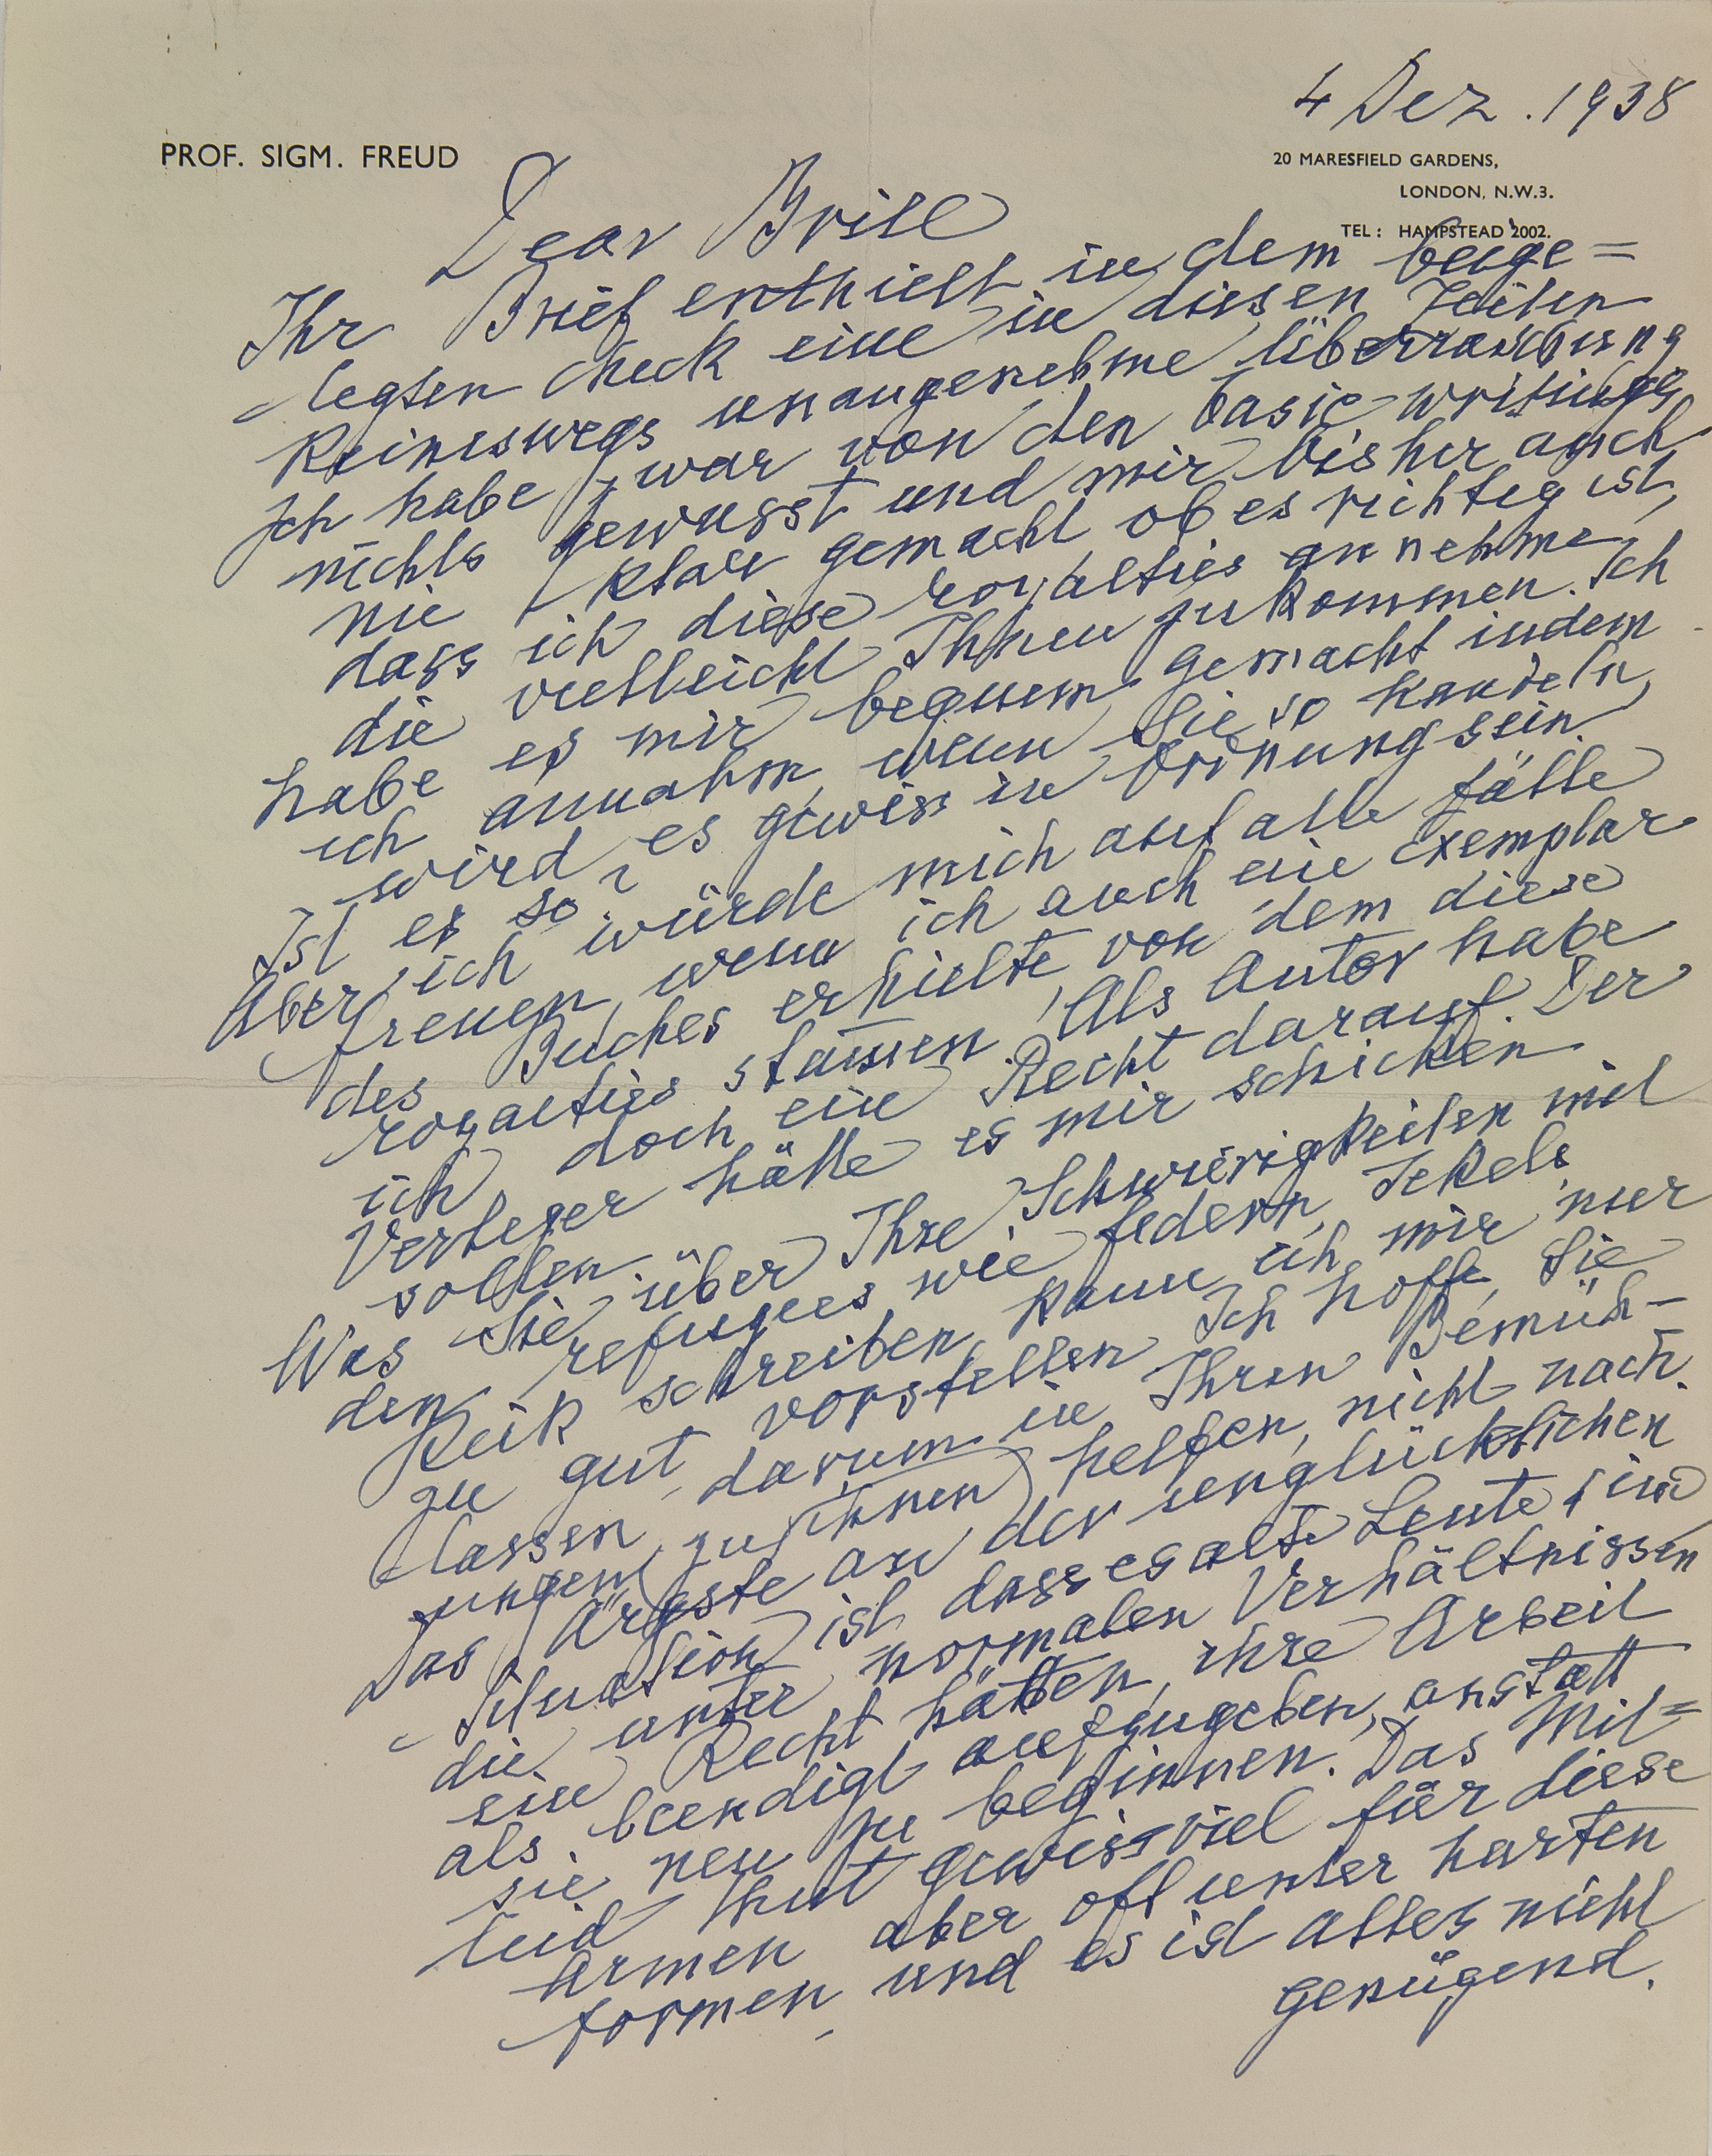 4 Dez. 1938
PROF. SIGM. FREUD
20 MARESFIELD GARDENS,
LONDON, N.W.3.
TEL: HAMPSTEAD 2002.
Dear Brill
Ihr Brief enthielt in dem beige=
legten Check eine in diesen Zeiten
keineswegs unangenehme Überraschung
Ich habe zwar von den basic writings
nichts gewusst und mir bisher auch
nie klar gemacht ob es richtig ist,
dass ich diese royalties annehme,
die vielleicht Ihnen zukommen. Ich
habe es mir bequem gemacht indem
ich annahm, wenn Sie so handeln,
wird es gewiss in Ordnung sein.
Ist es so?
Aber ich würde mich auf alle Fälle
freuen, wenn ich auch ein Exemplar
des Buches erhielte, von dem diese
royalties stammen. Als Autor habe
ich doch ein Recht darauf. Der
Verleger hätte es mir schicken
sollen.
Was Sie über Ihre Schwierigkeiten mit
den refugees wie Federn, Jekels
Reik schreiben, kann ich mir nur
zu gut vorstellen. Ich hoffe, Sie
lassen darum in Ihren Bemüh-
ungen, zu ihnen helfen, nicht nach.
Das Ärgste an der unglücklichen
Situation ist, dass es alte Leute sind
die unter normalen Verhältnissen
ein Recht hätten, ihre Arbeit
als beendigt aufzugeben, anstatt
sie neu zu beginnen. Das Mit=
leid thut gewiss viel für diese
Armen aber oft unter harten
Formen, und es ist alles nicht
genügend.